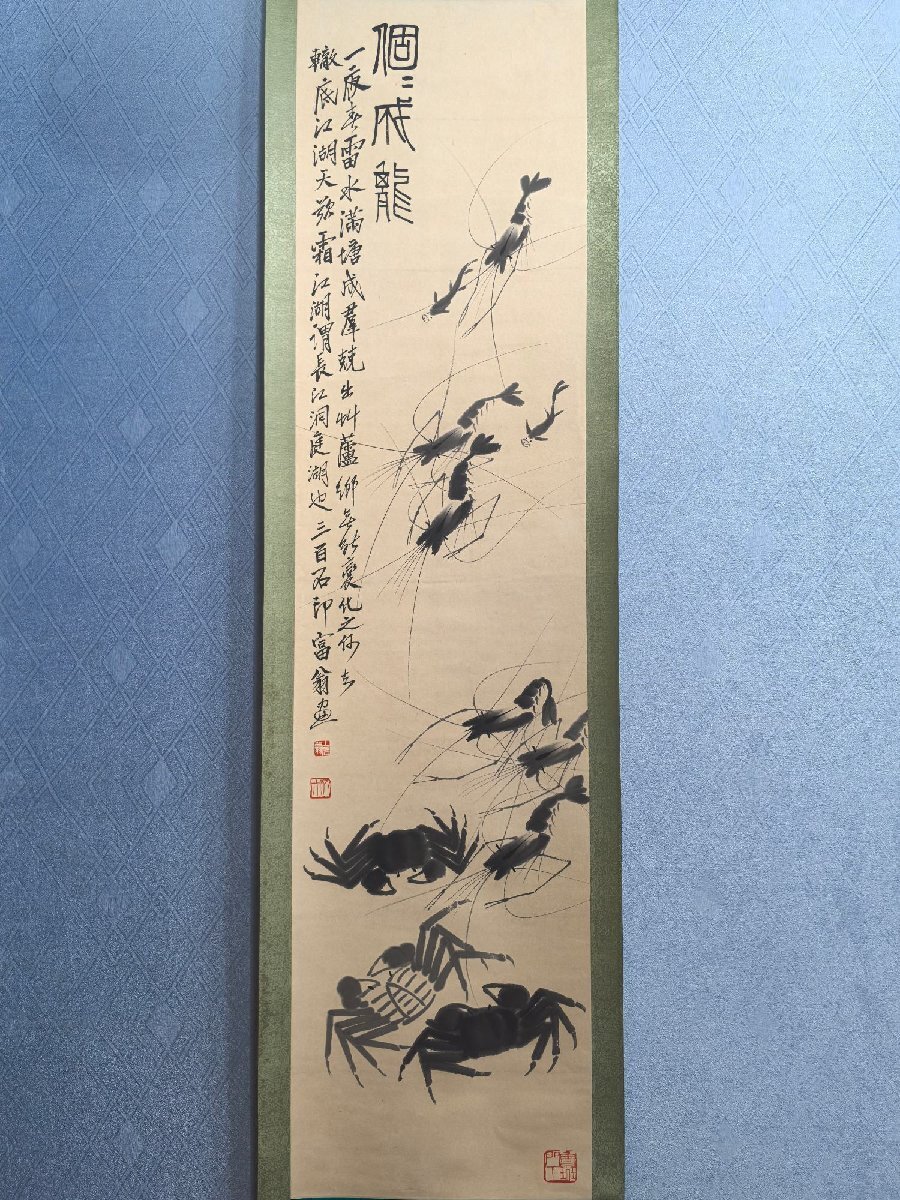 個〻成龍
一夜春雷水滿塘成羣競出艸蘆鄉無能變化之何
轍底江湖天欲霜江湖謂長江洞庭湖也三百石印富翁畫